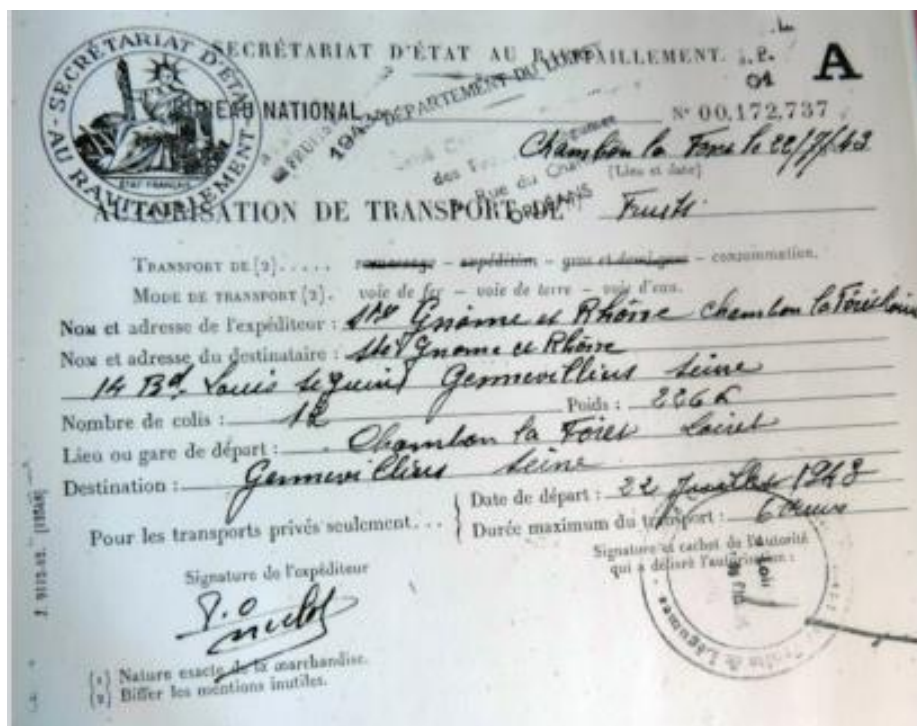 SECRÉTARIAT D'ÉTAT AU RAVITAILLEMENT.
SECRÉTARIAT D'ÉTAT AU RAVITAILLEMENT
ÉTAT FRANÇAIS
A
BUREAU NATIONAL
01
DÉPARTEMENT DU LOIRET
194
N° 00,172,737
Rue du
ORLEANS
Chambon la Forêt le 22/7/43
(Lieu et date)
AUTORISATION DE TRANSPORT DE Fruits
TRANSPORT DE (2)..... ramassage – expédition – gros et demi-gros – consommation.
MODE DE TRANSPORT (2). voie de fer – voie de terre – voie d'eau.
Nom et adresse de l'expéditeur : Sté Gnome et Rhône Chambon la Forêt Loiret
Nom et adresse du destinataire : Sté Gnome et Rhône
14 Bd Louis Seguin Gennevilliers Seine
Nombre de colis : 12 Poids : 226 K
Lieu ou gare de départ : Chambon la Forêt Loiret
Destination : Gennevilliers Seine
Pour les transports privés seulement...
Date de départ : 22 Juillet 1943
Durée maximum du transport :
Signature de l'expéditeur
Signature et cachet de l'autorité
qui a délivré l'autorisation :
P.O
Fruits & Légumes
(1) Nature exacte de la marchandise.
(2) Biffer les mentions inutiles.